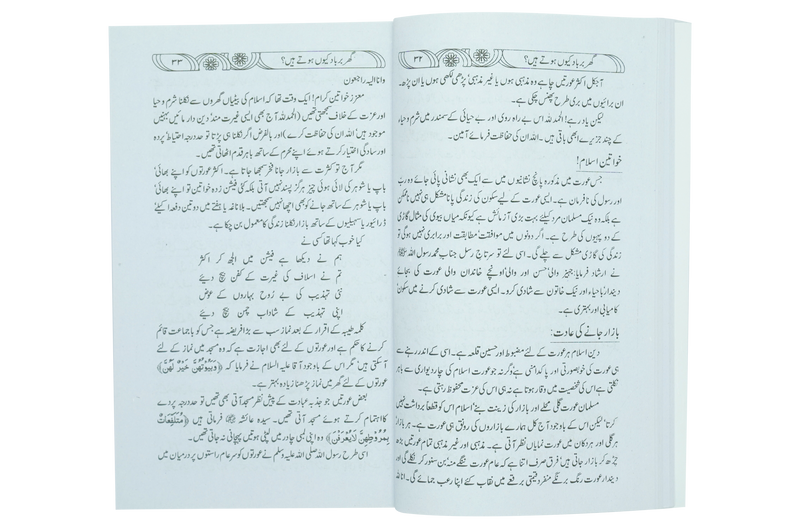 گھر برباد کیوں ہوتے ہیں؟ ۳۲
آجکل اکثر عورتیں چاہے وہ مذہبی ہوں یا غیر مذہبی پڑھی لکھی ہوں یا ان پڑھ۔
ان برائیوں میں بری طرح پھنس چکی ہے۔
لیکن یاد رہے! الحمدللہ اس بے راہ روی اور بے حیائی کے سمندر میں شرم وحیاء
کے چند جزیرے ابھی باقی ہیں۔ اللہ ان کی حفاظت فرمائے آمین۔
خواتین اسلام!
جس عورت میں مذکورہ پانچ نشانیوں میں سے ایک بھی نشانی پائی جائے وہ رب
اور رسول کی نافرمان ہے۔ ایسی عورت کے لیے سکون کی زندگی پانا مشکل ہی نہیں ناممکن
ہے بلکہ وہ نیک مسلمان مرد کیلئے بہت بڑی آزمائش ہے کیونکہ میاں بیوی کی مثال گاڑی
کے دو پہیوں کی طرح ہے۔ اگر دونوں میں موافقت مطابقت اور برابری نہیں ہوگی تو
زندگی کی گاڑی مشکل سے چلے گی۔ اسی لئے تو سرتاج رسل جناب محمد رسول اللہ ﷺ
نے ارشاد فرمایا: جہیز والی، حسن اور والی، اونچے خاندان والی عورت کی بجائے
دیندار باحیاء اور نیک خاتون سے شادی کرو۔ ایسی عورت سے شادی کرنے میں سکون،
کامیابی اور بہتری ہے۔
بازار جانے کی عادت:
دین اسلام ہر عورت کے لئے مضبوط اور حسین قلعہ ہے۔ اسی کے اندر رہنے سے
ہی عورت کی خوبصورتی اور پاکدامنی ہے وگرنہ جو عورت اسلام کی چار دیواری سے باہر
نکلتی ہے اس کی شخصیت میں وقار ہوتا ہے نہ ہی اس کی عزت محفوظ رہتی ہے۔
مسلمان عورت گلی محلے اور بازار کی زینت بنے اسلام اس کو قطعاً برداشت نہیں
کرتا لیکن اس کے باوجود آج کل ہمارے بازاروں کی رونق ہی عورت ہے۔ ہر بازار
ہر گلی اور ہر دکان میں عورت نمایاں نظر آتی ہے۔ مذہبی اور غیر مذہبی تمام عورتیں بڑھ
چڑھ کر بازار جاتی ہیں فرق صرف اتنا ہے کہ عام عورت ننگے منہ بن سنور کر نکلے گی اور
دیندار عورت رنگ برنگے منفرد قیمتی برقعے میں نقاب کئے اپنا رعب جمائے گی۔ انا للہ
گھر برباد کیوں ہوتے ہیں؟ ۳۳
وانا الیہ راجعون
معزز خواتین کرام! ایک وقت تھا کہ اسلام کی بیٹیاں گھروں سے نکلنا شرم وحیا
اور عزت کے خلاف سمجھتی تھیں (الحمدللہ آج بھی ایسی غیرت مند دین دار مائیں بہنیں
موجود ہیں اللہ ان کی حفاظت کرے) اور بالفرض اگر نکلنا ہی پڑتا تو حد درجہ احتیاط پردہ
اور سادگی اختیار کرتے ہوئے اپنے محرم کے ساتھ باہر قدم اٹھاتی تھیں۔
مگر آج تو کثرت سے بازار جانا فخر سمجھا جاتا ہے۔ اکثر عورتوں کو اپنے بھائی
باپ یا شوہر کی لائی ہوئی چیز ہرگز پسند نہیں آتی بلکہ کئی فیشن زدہ خواتین تو اپنے بھائی
باپ یا شوہر کے ساتھ جانے کو بھی اچھا نہیں سمجھتیں۔ بلا ناغہ یا ہفتے میں دو تین دفعہ اکیلے
ڈرائیور یا سہیلیوں کے ساتھ بازار نکلنا زندگی کا معمول بن چکا ہے۔
کیا خوب کہا تھا کسی نے
ہم نے دیکھا ہے فیشن میں الجھ کر اکثر
تم نے اسلاف کی غیرت کے کفن بیچ دیئے
نئی تہذیب کی بے روح بہاروں کے عوض
اپنی تہذیب کے شاداب چمن بیچ دیئے
کلمہ طیبہ کے اقرار کے بعد نماز سب سے بڑا فریضہ ہے جس کو باجماعت قائم
کرنے کا حکم ہے اور عورتوں کے لئے بھی اجازت ہے کہ وہ مسجد میں نماز کے لئے
آسکتی ہیں مگر اس کے باوجود آقا علیہ السلام نے فرمایا کہ ﴿وَبُيُوتُهُنَّ خَيْرٌ لَهُنَّ﴾
عورتوں کے لئے گھر میں نماز پڑھنا زیادہ بہتر ہے۔
بعض عورتیں جو جذبہ عبادت کے پیش نظر مسجد آتی بھی تھیں تو حد درجہ پردے
کا اہتمام کرتے ہوئے مسجد آتی تھیں۔ سیدہ عائشہ فرماتی ہیں ﴿مُتَلَفِّعَاتٌ
بِمُرُوطِهِنَّ لَا يُعْرَفْنَ﴾ وہ اپنی لمبی چادر میں لپٹی ہوتیں پہچانی نہ جاتی تھیں۔
اسی طرح رسول اللہ صلی اللہ علیہ وسلم نے عورتوں کو سرعام راستوں پر درمیان میں